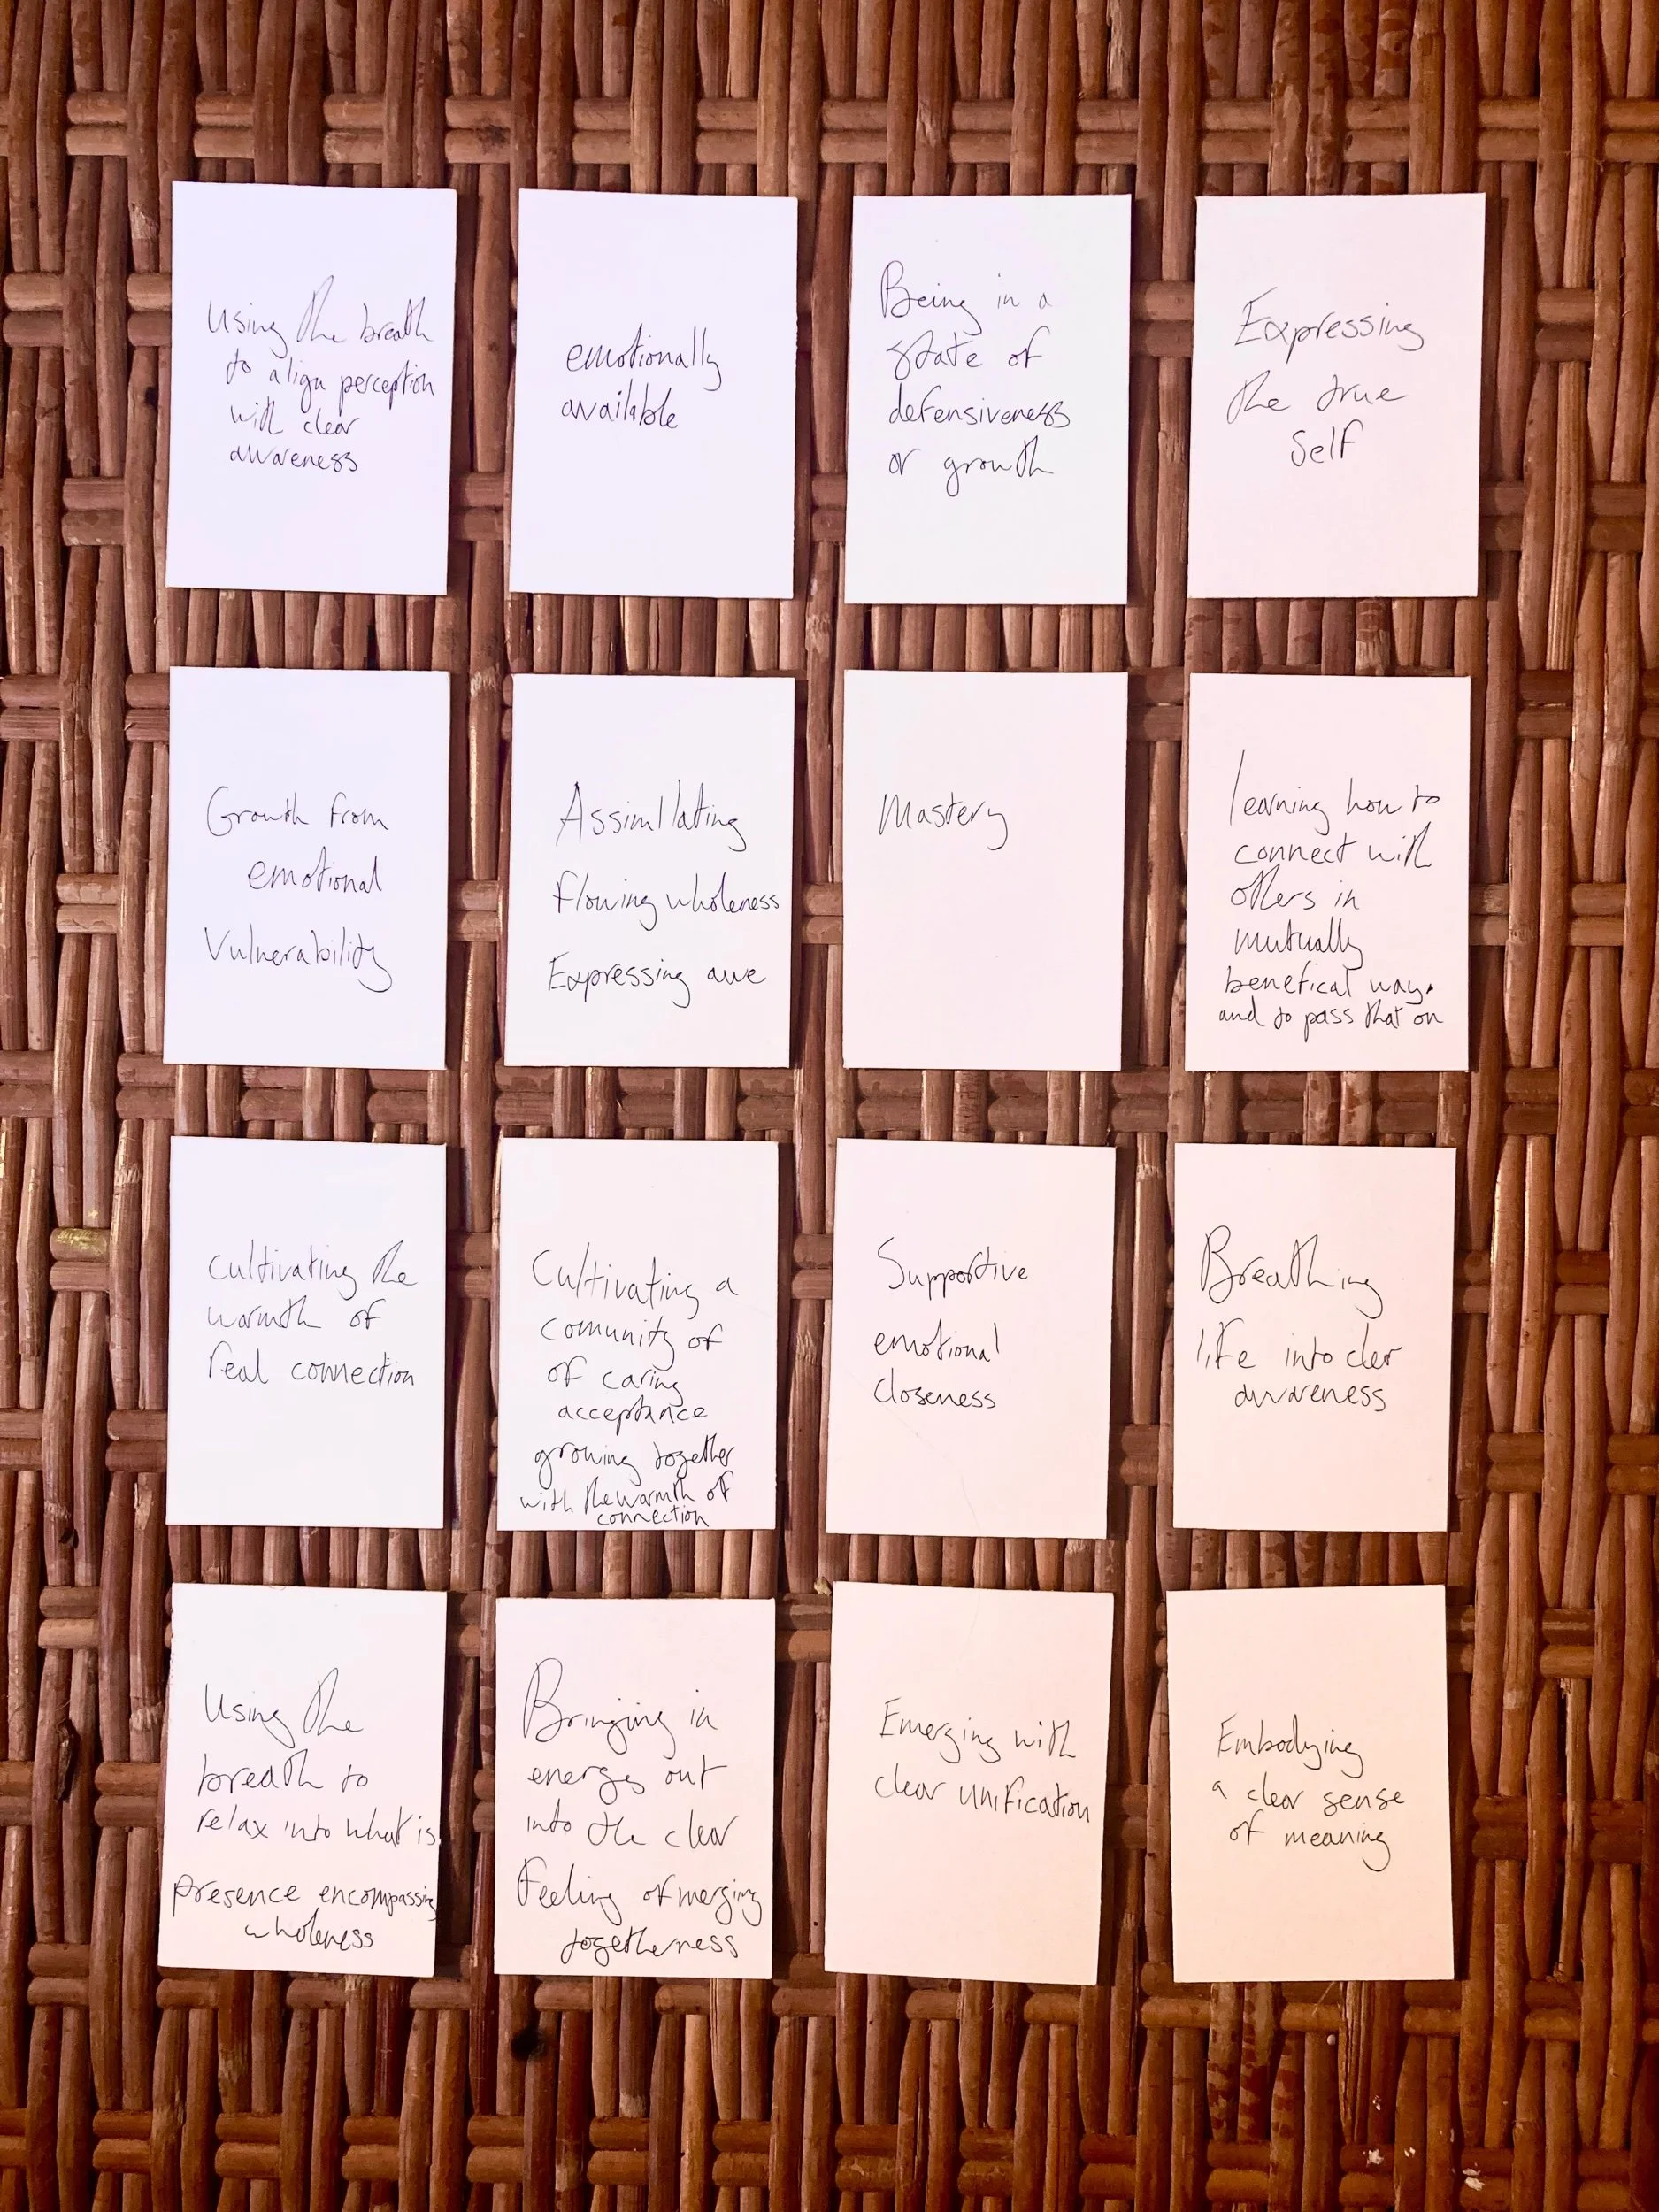 Using the breath
to align perception
with clear
awareness
emotionally
available
Being in a
state of
defensiveness
or growth
Expressing
the true
Self
Growth from
emotional
Vulnerability
Assimllating
flowing wholeness
Expressing awe
Mastery
learning how to
connect with
others in
mutually
benefical way.
and to pass that on
Cultivating the
warmth of
real connection
Cultivating a
comunity of
of caring
acceptance
growing together
with the warmth of
connection
Supportive
emotional
closeness
Breathing
life into cler
awareness
Using the
breath to
relax into what is
presence encompassing
wholeness
Bringing in
energy out
into the clear
Feeling of merging
togetherness
Emerging with
clear unification
Embodying
a clear sense
of meaning